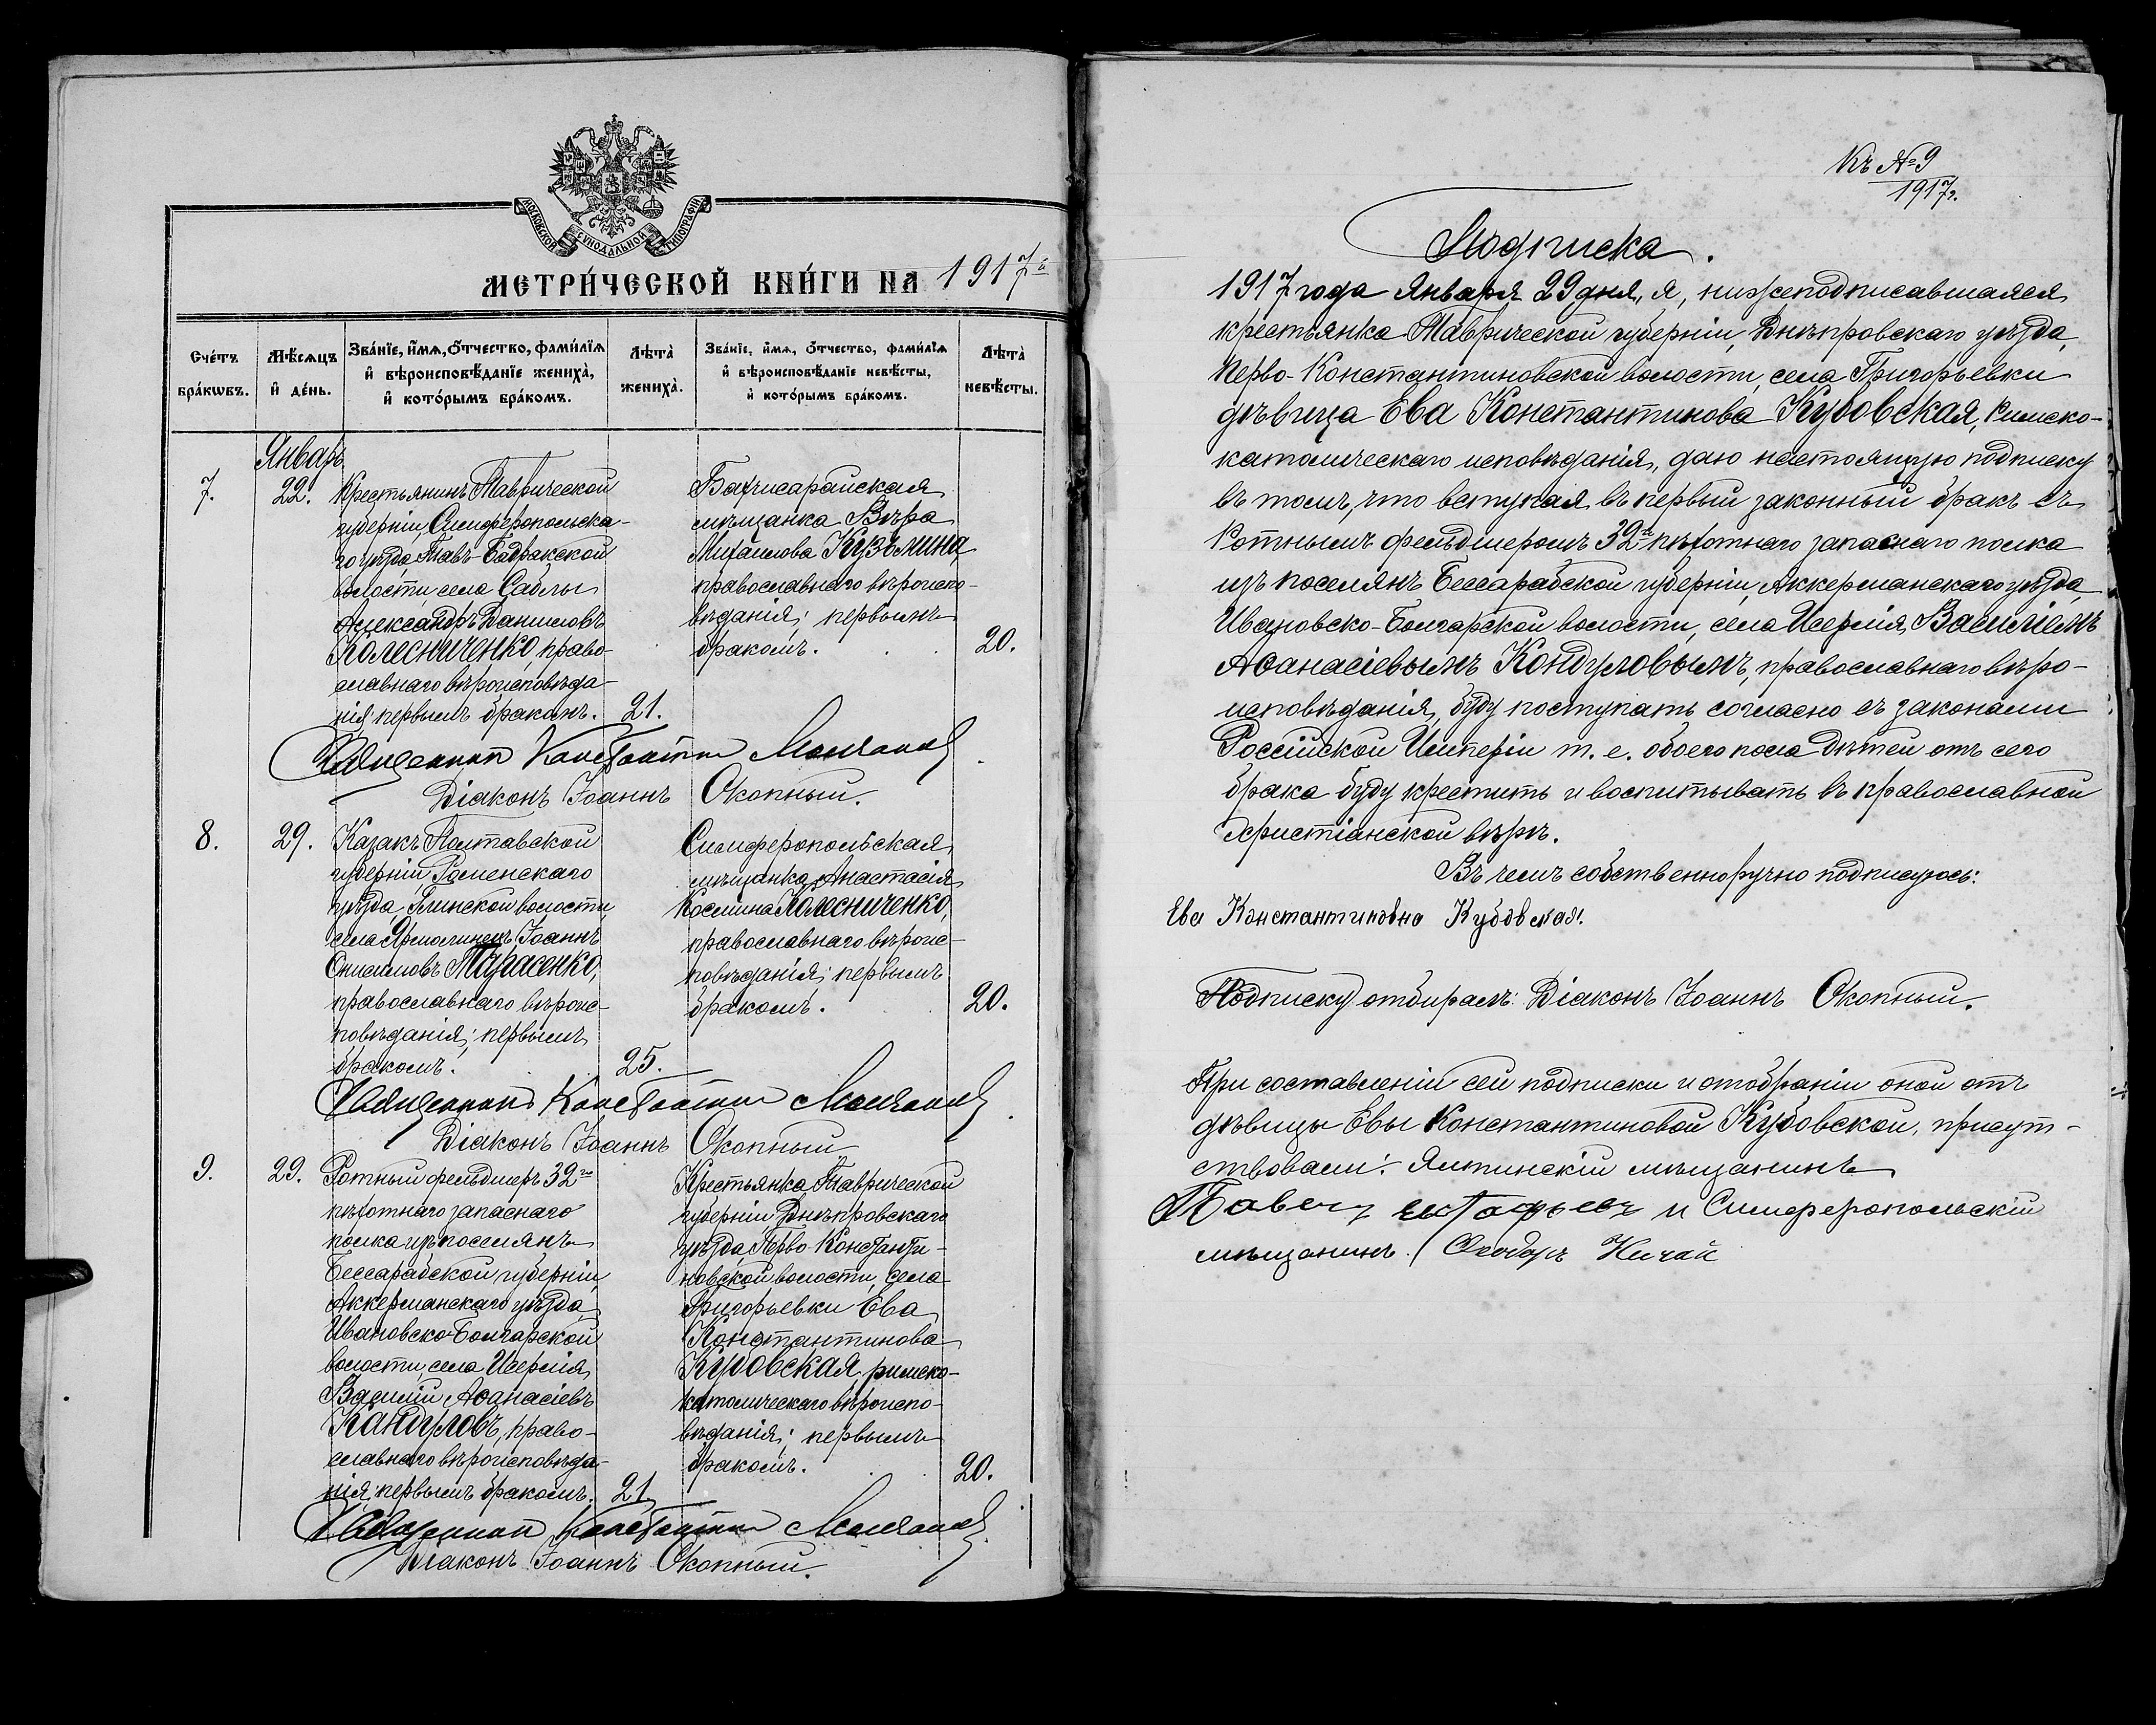 МОСКОВСКОЙ СѴНОДАЛЬНОЙ ТИПОГРАФІИ
МЕТРИ́ЧЕСКОЙ КНИ́ГИ НА 1917й
Сче́тъ бра́кѡвъ.
Мѣ́сяцъ и҆ де́нь.
Зва́нїе, и҆́мѧ, ѻ҆́тчество, фами́лїѧ и҆ вѣроисповѣ́данїе жениха̀, и҆ кото́рымъ бра́комъ.
Лѣ́та̀ жениха̀.
Зва́нїе, и҆́мѧ, ѻ҆́тчество, фами́лїѧ и҆ вѣроисповѣ́данїе невѣ́сты, и҆ кото́рымъ бра́комъ.
Лѣ́та̀ невѣ́сты.
Январь
7.
22.
Крестьянинъ Таврической
губерніи, Симферопольска-
го уѣзда, Тавъ-Бадракской
волости, села Саблы
Александръ Даниловъ
Колесниченко, право-
славнаго вѣроисповѣда-
нія; первымъ бракомъ.
21.
Бахчисарайская
мѣщанка Вѣра
Михайлова Кузьмина,
православнаго вѣроиспо-
вѣданія; первымъ
бракомъ.
20.
Священникъ Константинъ
Діаконъ Іоаннъ Окопный.
8.
29.
Казакъ Полтавской
губерніи, Роменскаго
уѣзда, Глинской волости,
села Ярмолинецъ, Іоаннъ
Онисимовъ Тарасенко,
православнаго вѣроис-
повѣданія; первымъ
бракомъ.
25.
Симферопольская
мѣщанка Анастасія
Космина Колесниченко,
православнаго вѣроис-
повѣданія; первымъ
бракомъ.
20.
Священникъ Константинъ
Діаконъ Іоаннъ Окопный
9.
29.
Ротный фельдшеръ 32го
пѣхотнаго запаснаго
полка изъ поселянъ
Бессарабской губерніи,
Аккерманскаго уѣзда,
Ивановско-Болгарской
волости, села Исерлія,
Василій Аѳанасіевъ
Кандуловъ, право-
славнаго вѣроисповѣда-
нія; первымъ бракомъ.
21.
Крестьянка Таврической
губерніи Днѣпровскаго
уѣзда, Перво-Константи-
новской волости, села
Григорьевки Ева
Константинова
Кубовская, римско-
католическаго вѣроиспо-
вѣданія; первымъ
бракомъ.
20.
Священникъ Константинъ
Діаконъ Іоаннъ Окопный.
Къ №9
1917г.
Подписка.
1917 года Января 29 дня, я, нижеподписавшаяся
крестьянка Таврической губерніи, Днѣпровскаго уѣзда,
Перво-Константиновской волости, села Григорьевки
дѣвица Ева Константинова Кубовская, Римско-
католическаго исповѣданія, даю настоящую подписку
въ томъ, что вступая въ первый законный бракъ съ
Ротнымъ фельдшеромъ 32го пѣхотнаго запаснаго полка
изъ поселянъ Бессарабской губерніи, Аккерманскаго уѣзда,
Ивановско-Болгарской волости, села Исерлія, Василіемъ
Аѳанасіевымъ Кондуловымъ, православнаго вѣро-
исповѣданія, буду поступать согласно съ законами
Россійской Имперіи т. е. обоего пола дѣтей отъ сего
брака буду крестить и воспитывать въ православной
христіанской вѣрѣ.
Въ чемъ собственноручно подписуюсь:
Ева Константиновна Кубовская.
Подписку отбиралъ: Діаконъ Іоаннъ Окопный.
При составленіи сей подписки и отобраніи оной отъ
дѣвицы Евы Константиновой Кубовской, присут-
ствовали: Ялтинскій мѣщанинъ
Павелъ и Симферопольскій
мѣщанинъ Ѳеодоръ Ничай